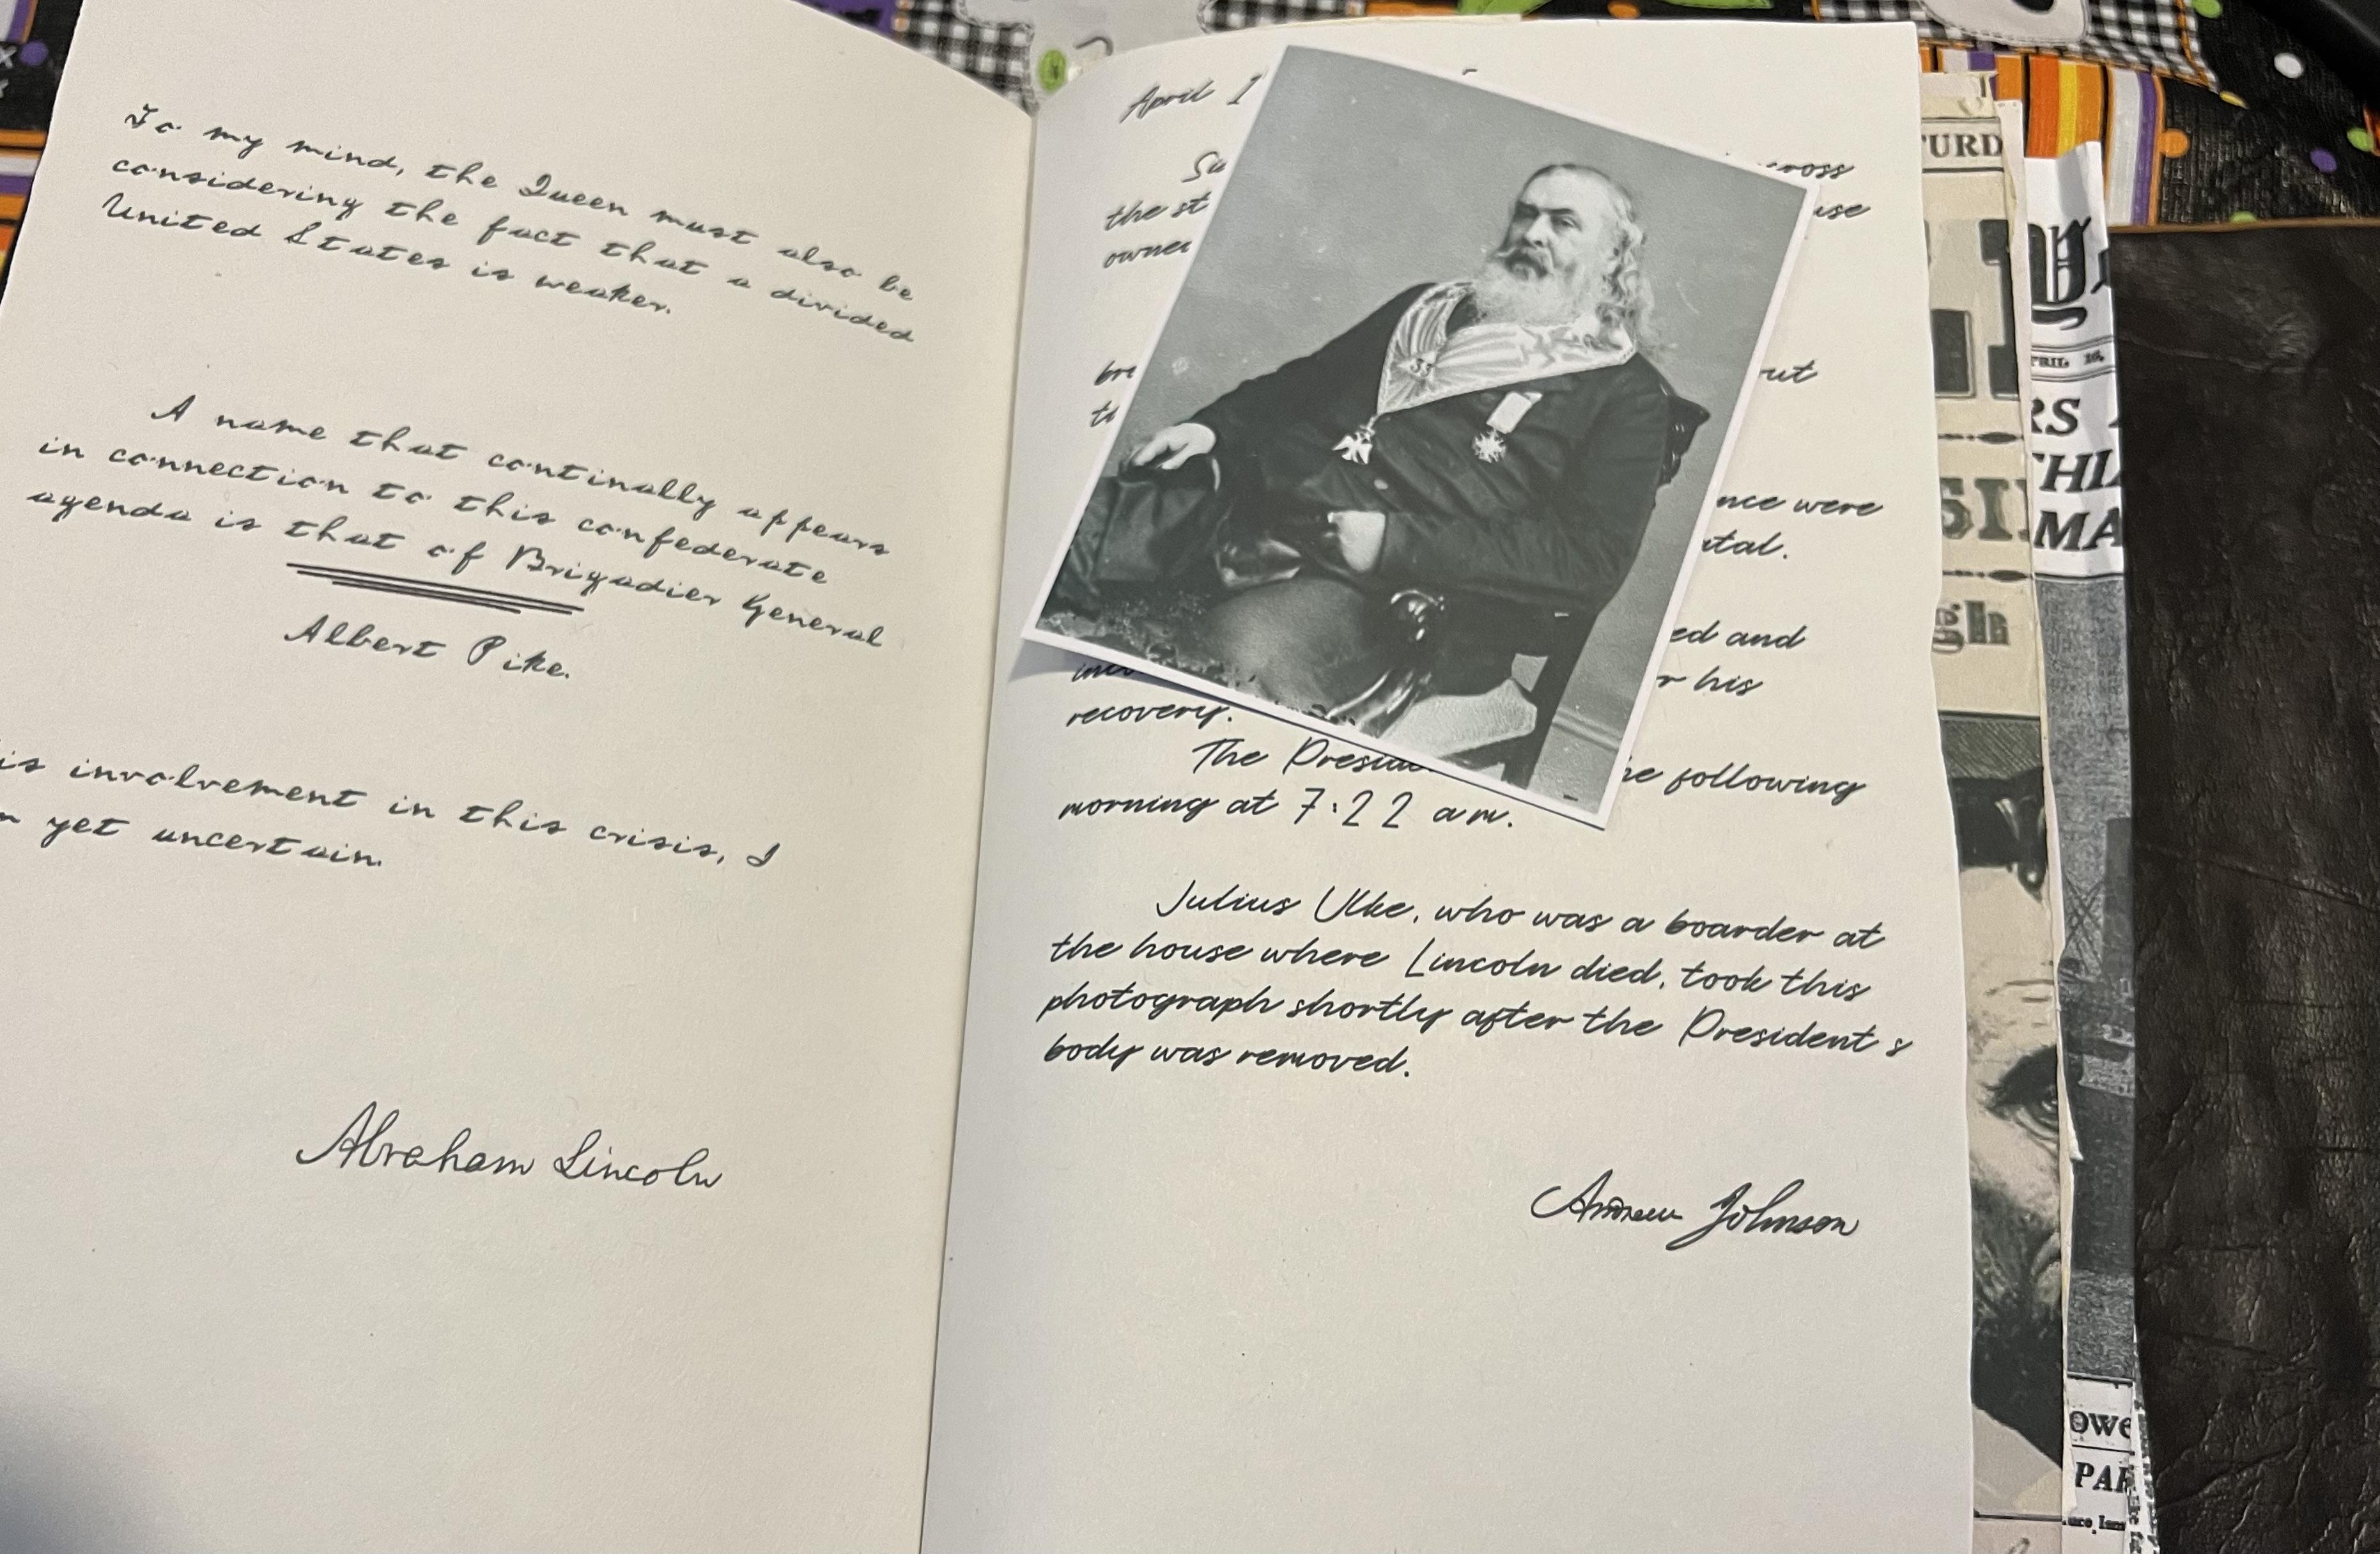 To my mind, the Queen must also be
considering the fact that a divided
United States is weaker.
A name that continally appears
in connection to this confederate
agenda is that of Brigadier General
Albert Pike.
is involvement in this crisis, I
yet uncertain.
Abraham Lincoln
April 1
the st
owner
33
out
were
ed and
his
recovery.
The following
morning at 7:22 am.
Julius Ulke, who was a boarder at
the house where Lincoln died, took this
photograph shortly after the President s
body was removed.
Andrew Johnson
TURD
APRIL 16,
RS
THI
MA
SI
gh
OWE
PAR